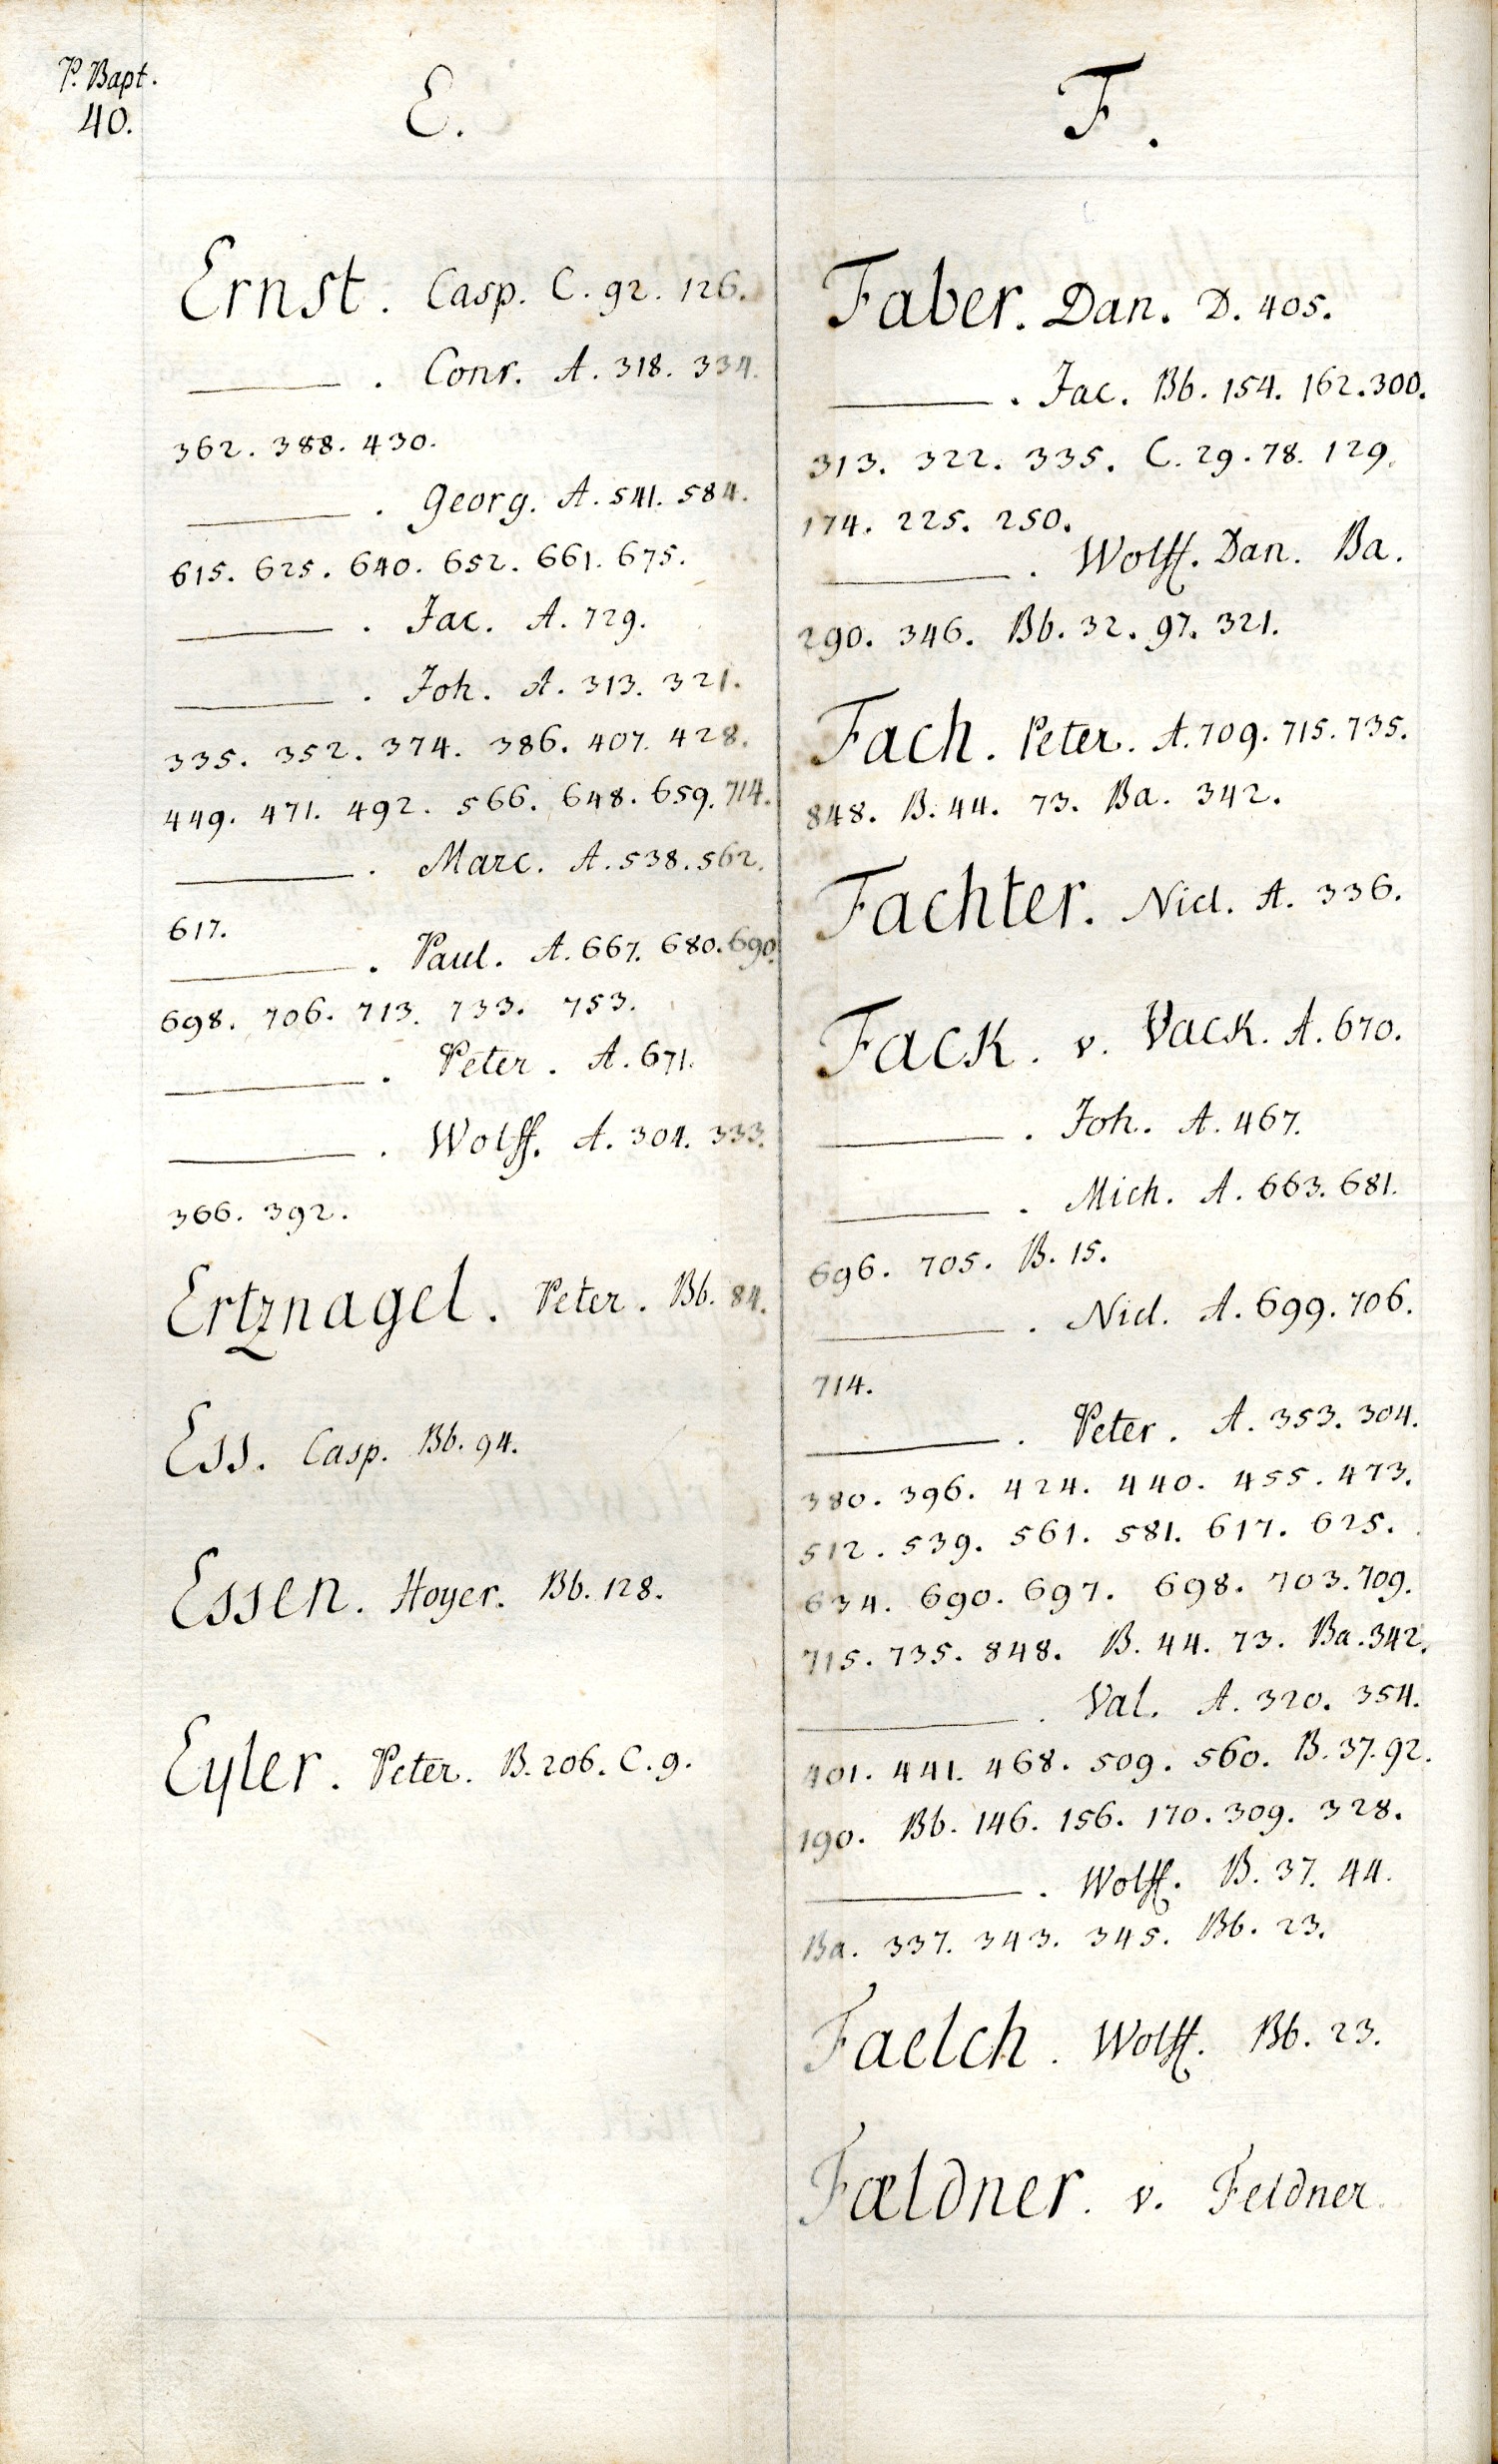 P. Bapt.
40.
E.
Ernst. Casp. C. 92. 126.
———. Conr. A. 318. 334.
362. 388. 430.
———. Georg. A. 541. 584.
615. 625. 640. 652. 661. 675.
———. Jac. A. 729.
———. Joh. A. 313. 321.
335. 352. 374. 386. 407. 428.
449. 471. 492. 566. 648. 659. 714.
———. Marc. A. 538. 562.
617.
———. Paul. A. 667. 680. 690.
698. 706. 713. 733. 753.
———. Peter. A. 671.
———. Wolff. A. 304. 333.
366. 392.
Ertznagel. Peter. Bb. 84.
Ess. Casp. Bb. 94.
Essen. Hoyer. Bb. 128.
Eyler. Peter. B. 206. C. 9.
F.
Faber. Dan. D. 405.
———. Jac. Bb. 154. 162. 300.
313. 322. 335. C. 29. 78. 129.
174. 225. 250.
———. Wolff. Dan. Ba.
290. 346. Bb. 32. 97. 321.
Fach. Peter. A. 709. 715. 735.
848. B. 44. 73. Ba. 342.
Fachter. Nicl. A. 336.
Fack. v. Vack. A. 670.
———. Joh. A. 467.
———. Mich. A. 663. 681.
696. 705. B. 15.
———. Nicl. A. 699. 706.
714.
———. Peter. A. 353. 304.
380. 396. 424. 440. 455. 473.
512. 539. 561. 581. 617. 625.
634. 690. 697. 698. 703. 709.
715. 735. 848. B. 44. 73. Ba. 342.
———. Val. A. 320. 354.
401. 441. 468. 509. 560. B. 37. 92.
190. Bb. 146. 156. 170. 309. 328.
———. Wolff. B. 37. 44.
Ba. 337. 343. 345. Bb. 23.
Faelch. Wolff. Bb. 23.
Fældner. v. Feldner.